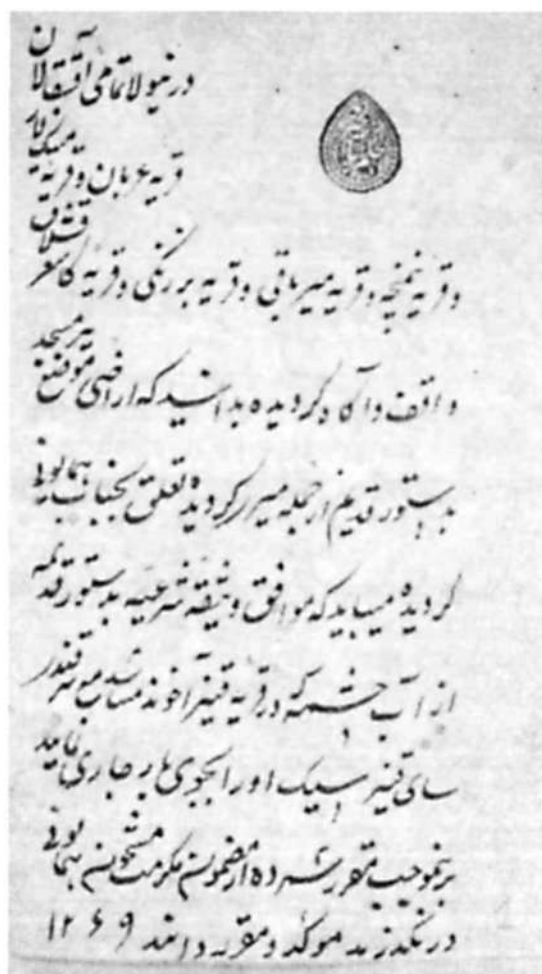 درینولا تمامی آقسقالان
قریه عربان و قریه
و قریه نمنچه و قریه میرباقی و قریه بزرنگی و قریه
واقف و آگاه گردیده بدانید که اراضی موضع سرمسجد
بدستور قدیم از جمله میرز گردیده تعلق بجناب همایونی
گردیده میباید که موافق وثیقه شرعیه بدستور قدیمه
از آب چشمه که در قریه قیز آخوند میباشد مع
سای قیز اورا بجوی ها جاری نماید
بر بموجب مقرر شده از مضمون مکرمت مشحون همایونی
در نگذرند موکد و مقرر دانند ۱۲۶۹